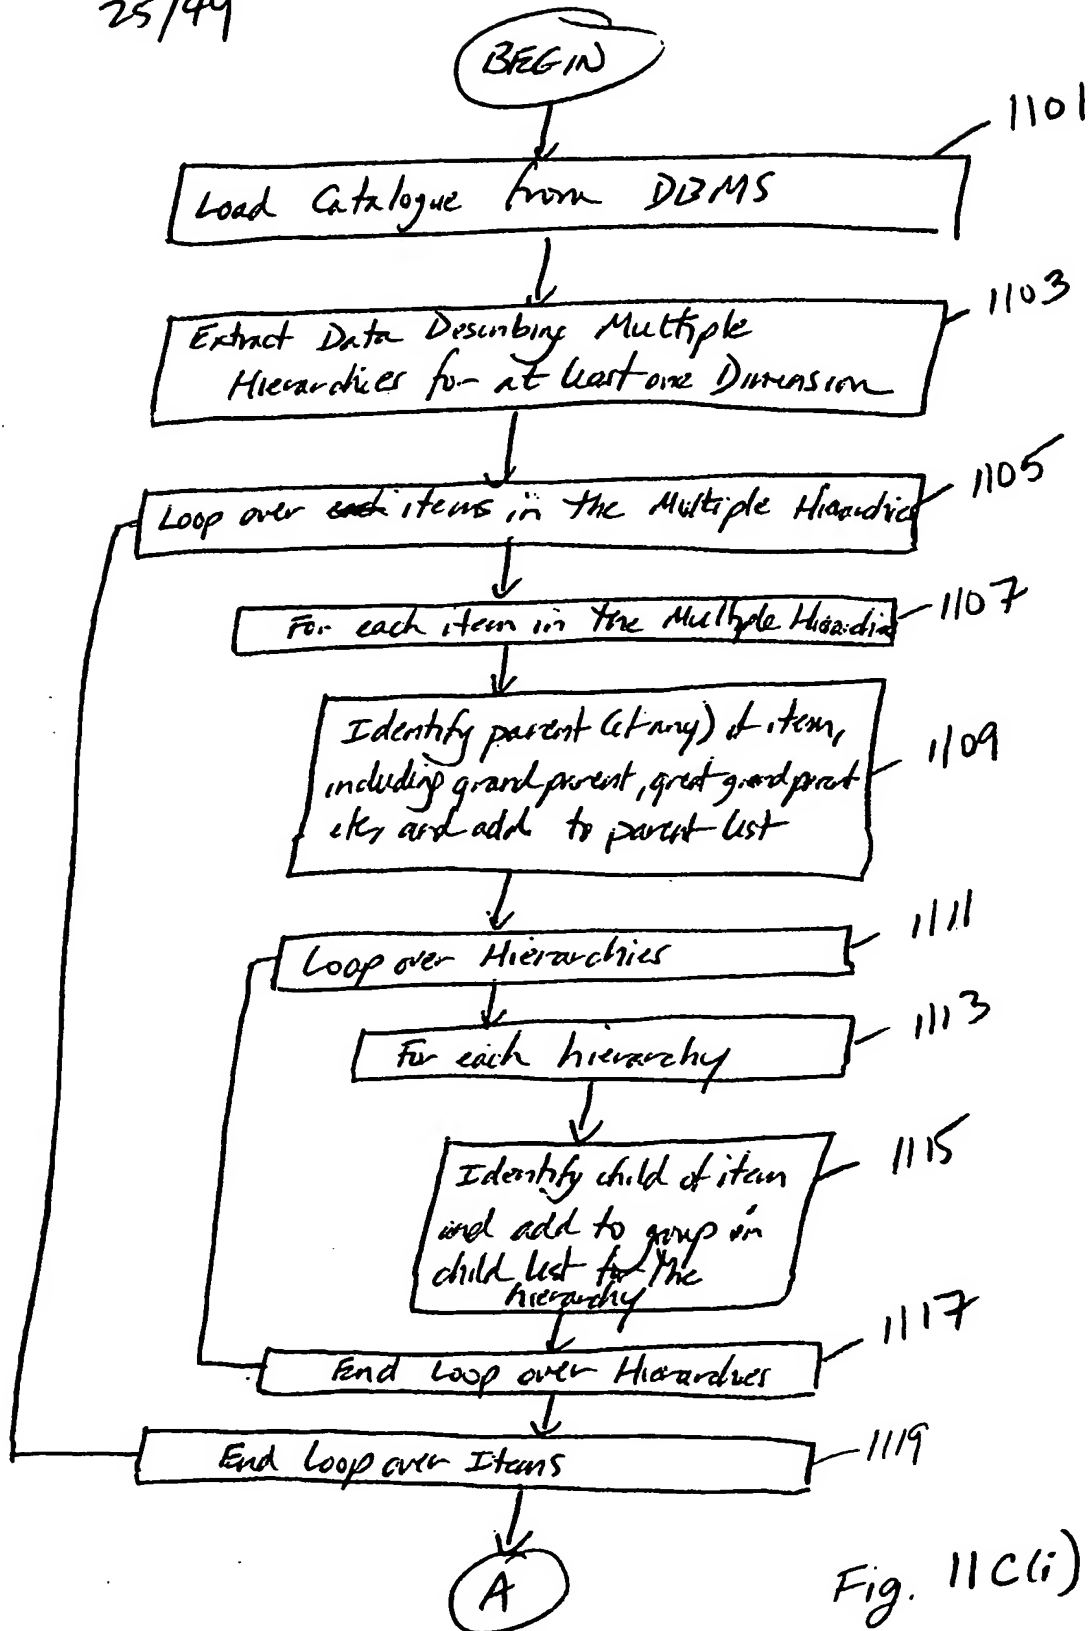 25/49
BEGIN
1101
Load Catalogue from DBMS
1103
Extract Data Describing Multiple
Hierarchies for at least one Dimension
1105
Loop over each items in the Multiple Hierarchies
1107
For each item in the Multiple Hierarchies
Identify parent (if any) of item,
1109
including grandparent, great grandparent
etc, and add to parent list
1111
Loop over Hierarchies
1113
For each hierarchy
1115
Identify child of item
and add to group in
child list for the
hierarchy
1117
End Loop over Hierarchies
1119
End Loop over Items
A
Fig. 11C(i)